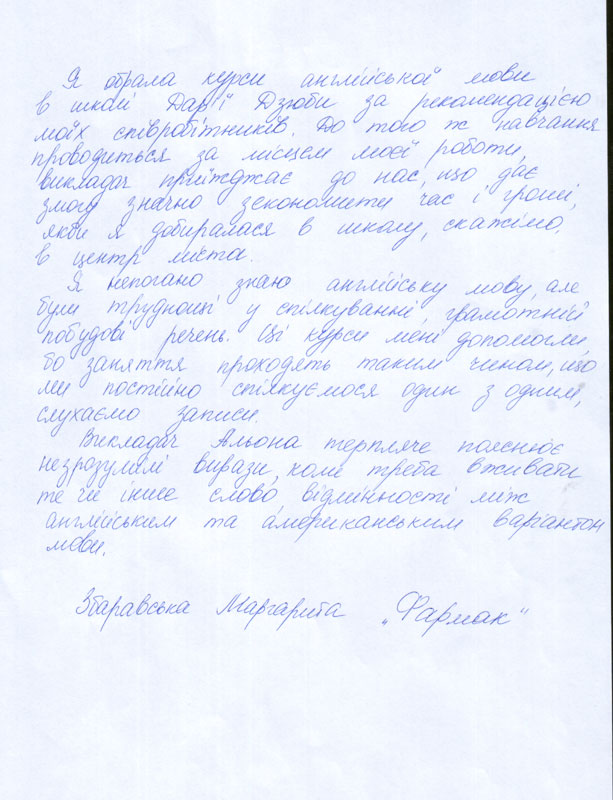 Я обрала курси англійської мови
в школі Дар'ї Дзюби за рекомендацією
моїх співробітників. До того ж навчання
проводиться за місцем моєї роботи,
викладач приїжджає до нас, що дає
змогу значно зекономити час і гроші,
якби я добиралася в школу, скажімо,
в центр міста.
Я непогано знаю англійську мову, але
були труднощі у спілкуванні, грамотній
побудові речень. Ці курси мені допомогли,
бо заняття проходять таким чином, що
ми постійно спілкуємося один з одним,
слухаємо записи.
Викладач Альона терпляче пояснює
незрозумілі вирази, коли треба вживати
те чи інше слово, відмінності між
англійським та американським варіантом
мови.
Збаравська Маргарита „Фармак“